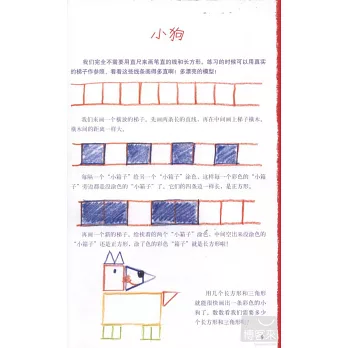 小狗
我们完全不需要用直尺来画笔直的线和长方形。练习的时候可以用真实
的梯子作参照。看看这些线条画得多直啊！多漂亮的模型！
我们来画一个横放的梯子。先画两条长的直线，再在中间画上梯子横木，
横木间的距离一样大。
每隔一个“小箱子”给另一个“小箱子”涂色。这样每一个彩色的“小箱
子”旁边都是没涂色的“小箱子”了。它们的四条边一样长，是正方形。
再画一个新的梯子。给挨着的两个“小箱子”涂色，中间空出来没涂色的
“小箱子”还是正方形，涂了色的彩色“箱子”就是长方形啦！
用几个长方形和三角形
就能很快画出一条彩色的小
狗了。数数看我们需要多少
个长方形和三角形